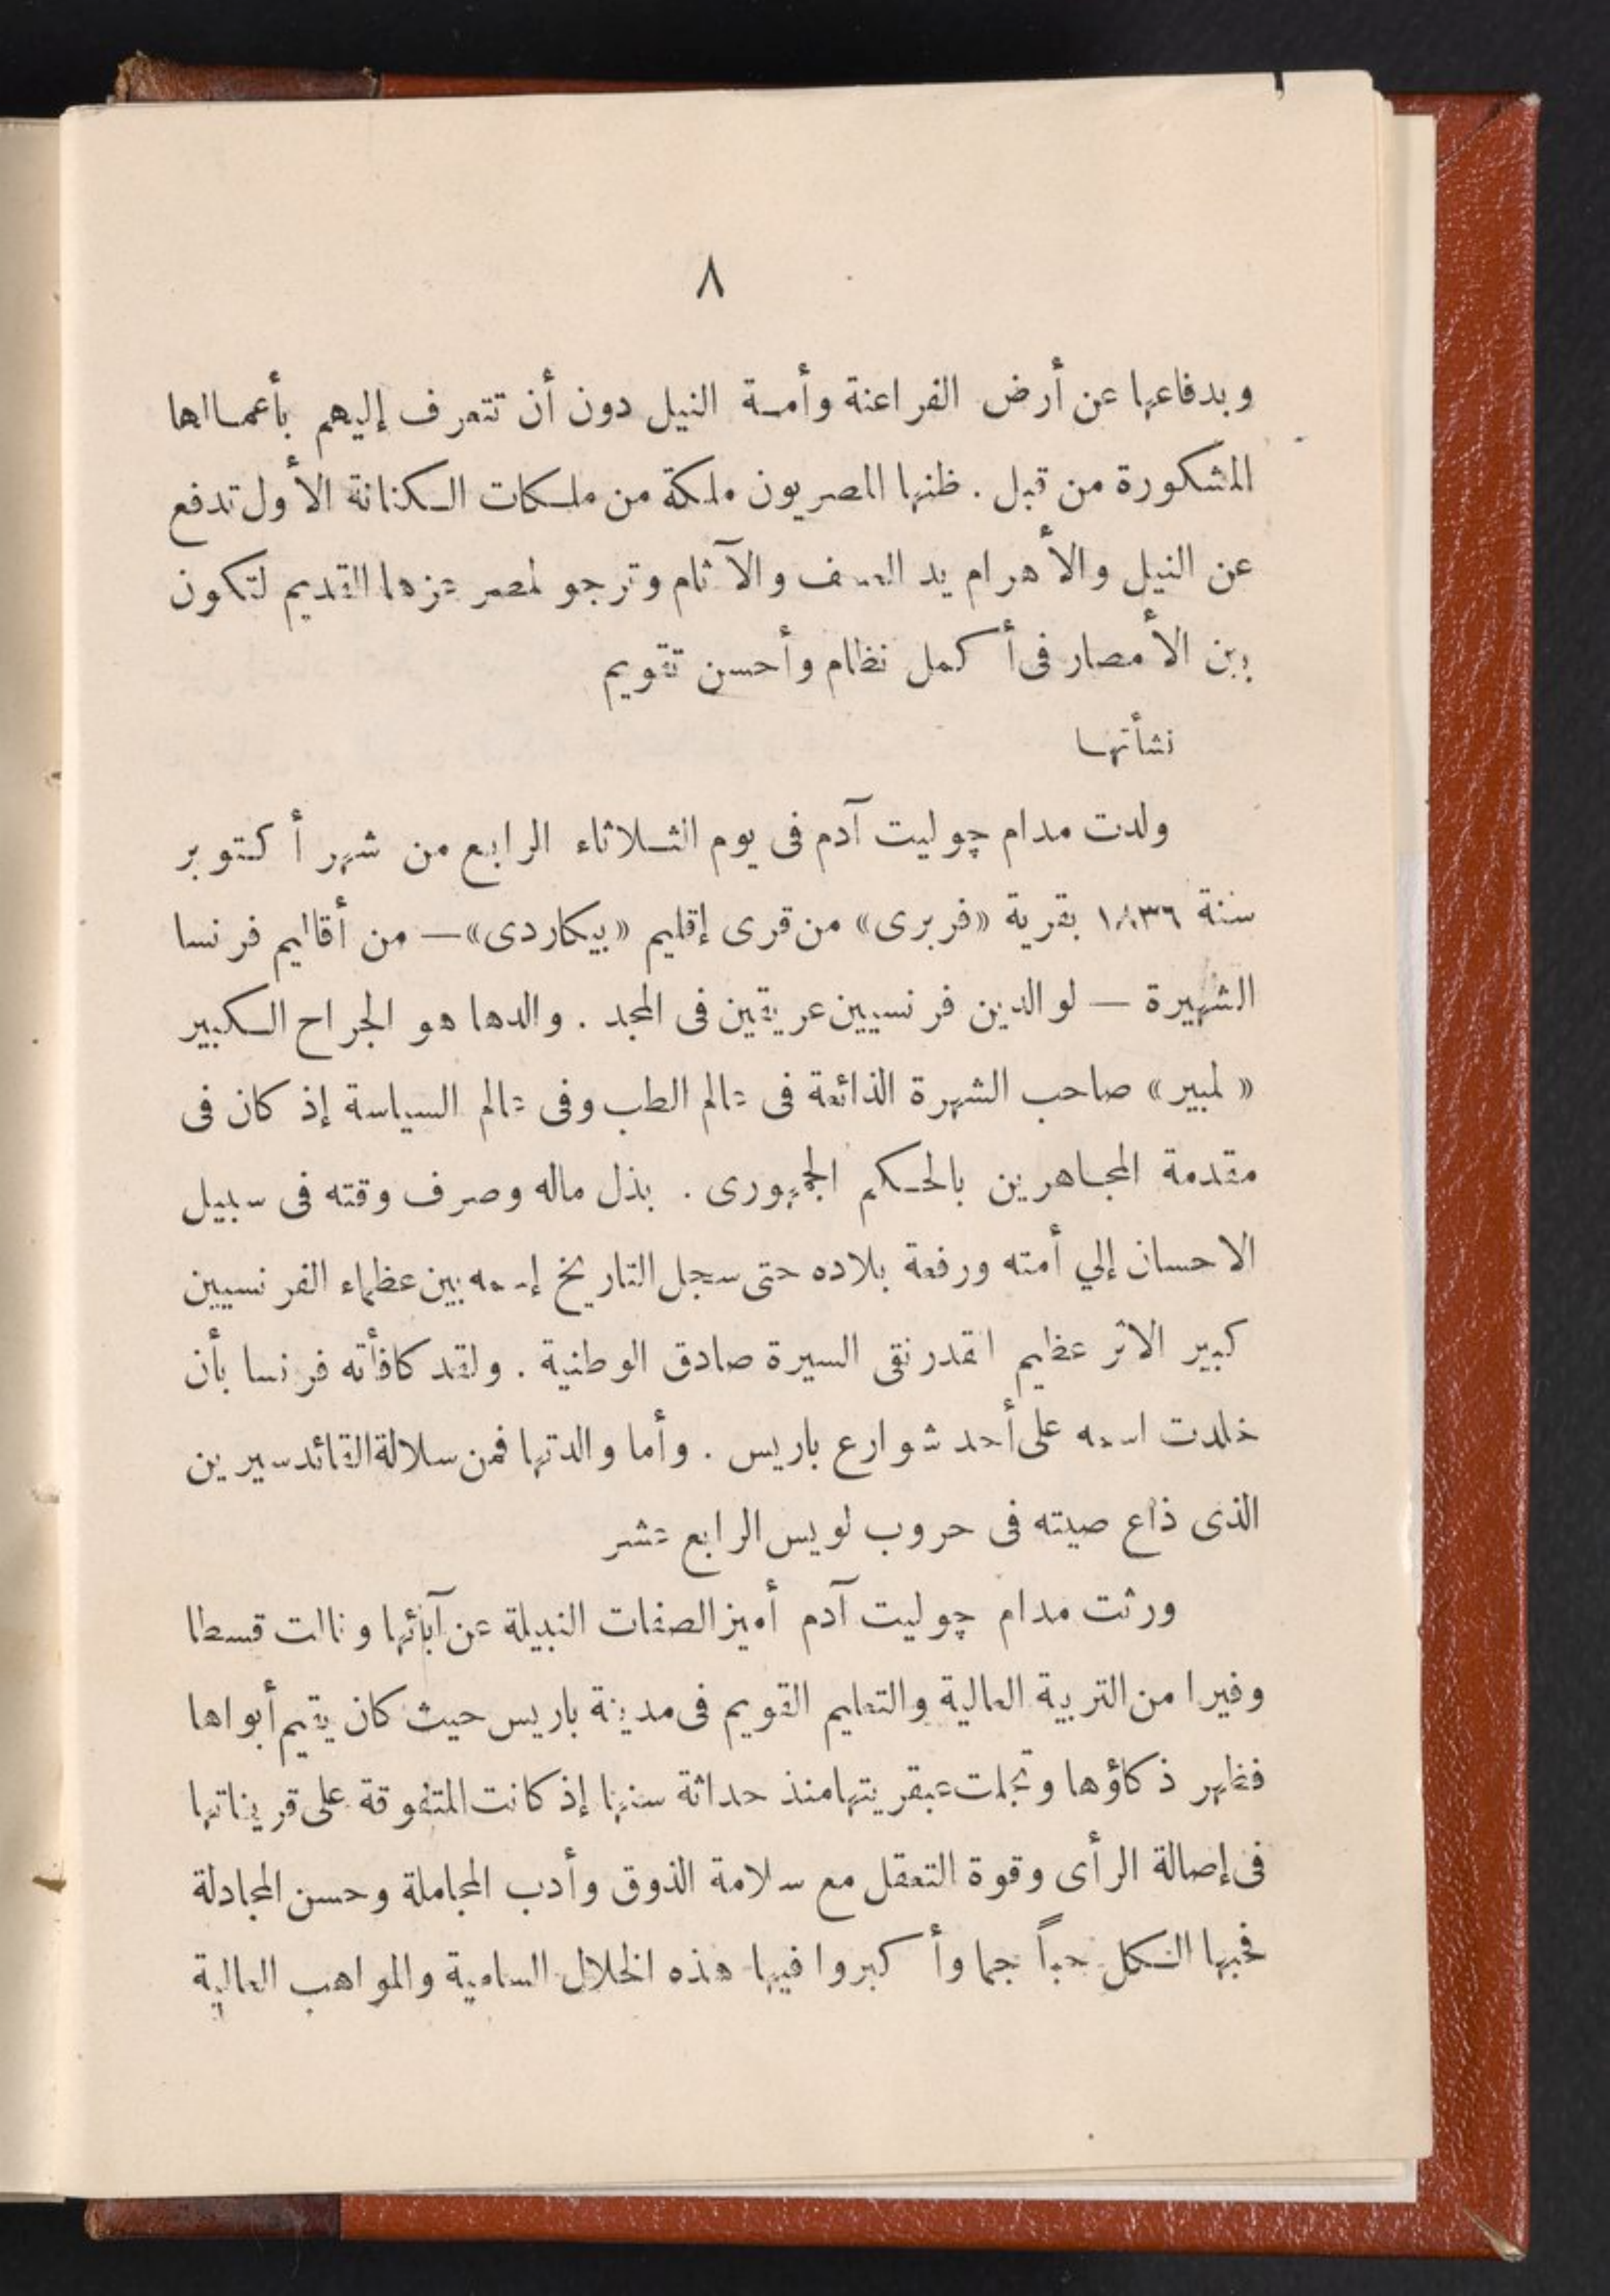 ٨
وبدفاعها عن أرض الفراعنة وأمة النيل دون أن تتعرف إليهم بأعمالها
المشكورة من قبل . ظنها المصريون ملكة من ملكات الكنانة الأول تدفع
عن النيل والأهرام يد العسف والآثام وترجو لمصر عزها القديم لتكون
بين الأمصار فى أكمل نظام وأحسن تقويم
نشأتها
ولدت مدام چوليت آدم فى يوم الثلاثاء الرابع من شهر أكتوبر
سنة ١٨٣٦ بقرية «فربرى» من قرى إقليم «بيكاردى» — من أقاليم فرنسا
الشهيرة — لوالدين فرنسيين عريقين فى المجد . والدها هو الجراح الكبير
« لمبير » صاحب الشهرة الذائعة فى عالم الطب وفى عالم السياسة إذ كان فى
مقدمة المجاهرين بالحكم الجمهورى . بذل ماله وصرف وقته فى سبيل
الاحسان إلي أمته ورفعة بلاده حتى سجل التاريخ إسمه بين عظماء الفرنسيين
كبير الاثر عظيم القدر نقى السيرة صادق الوطنية . ولقد كافأته فرنسا بأن
خلدت اسمه على أحد شوارع باريس . وأما والدتها فمن سلالة القائد سيرين
الذى ذاع صيته فى حروب لويس الرابع عشر
ورثت مدام چوليت آدم أميز الصفات النبيلة عن آبائها ونالت قسطا
وفيرا من التربية العالية والتعليم القويم فى مدينة باريس حيث كان يقيم أبواها
فظهر ذكاؤها وتجلت عبقريتها منذ حداثة سنها إذ كانت المتفوقة على قريناتها
فى إصالة الرأى وقوة التعقل مع سلامة الذوق وأدب المجاملة وحسن المجادلة
فحبها الكل حباً جما وأكبروا فيها هذه الخلال السامية والمواهب العالية